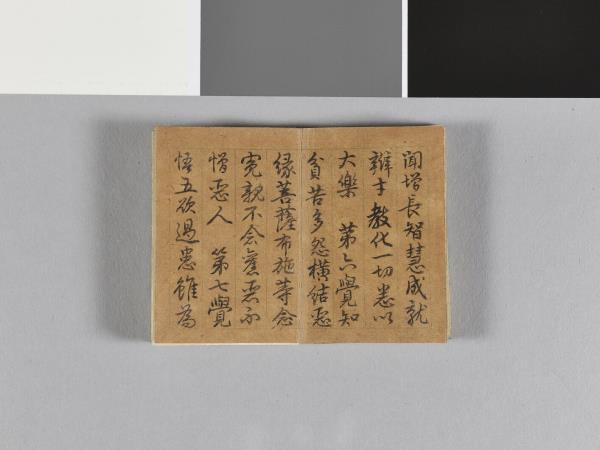 聞增長智慧成就
辯才教化一切悉以
大樂　第六覺知
貧苦多怨橫結惡
緣菩薩布施等念
冤親不念舊惡不
憎惡人　第七覺
悟五欲過患雖為